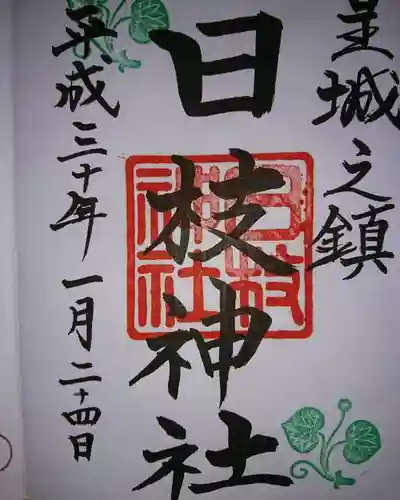 皇城之鎮
日枝神社
平成三十年一月二十四日
日枝
神社